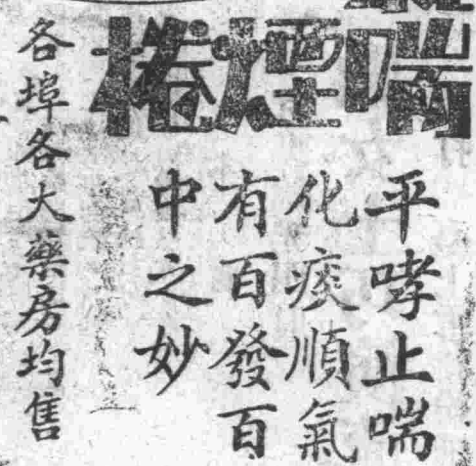 喘煙捲
平哮止喘
化痰順氣
有百發百
中之妙
各埠各大藥房均售